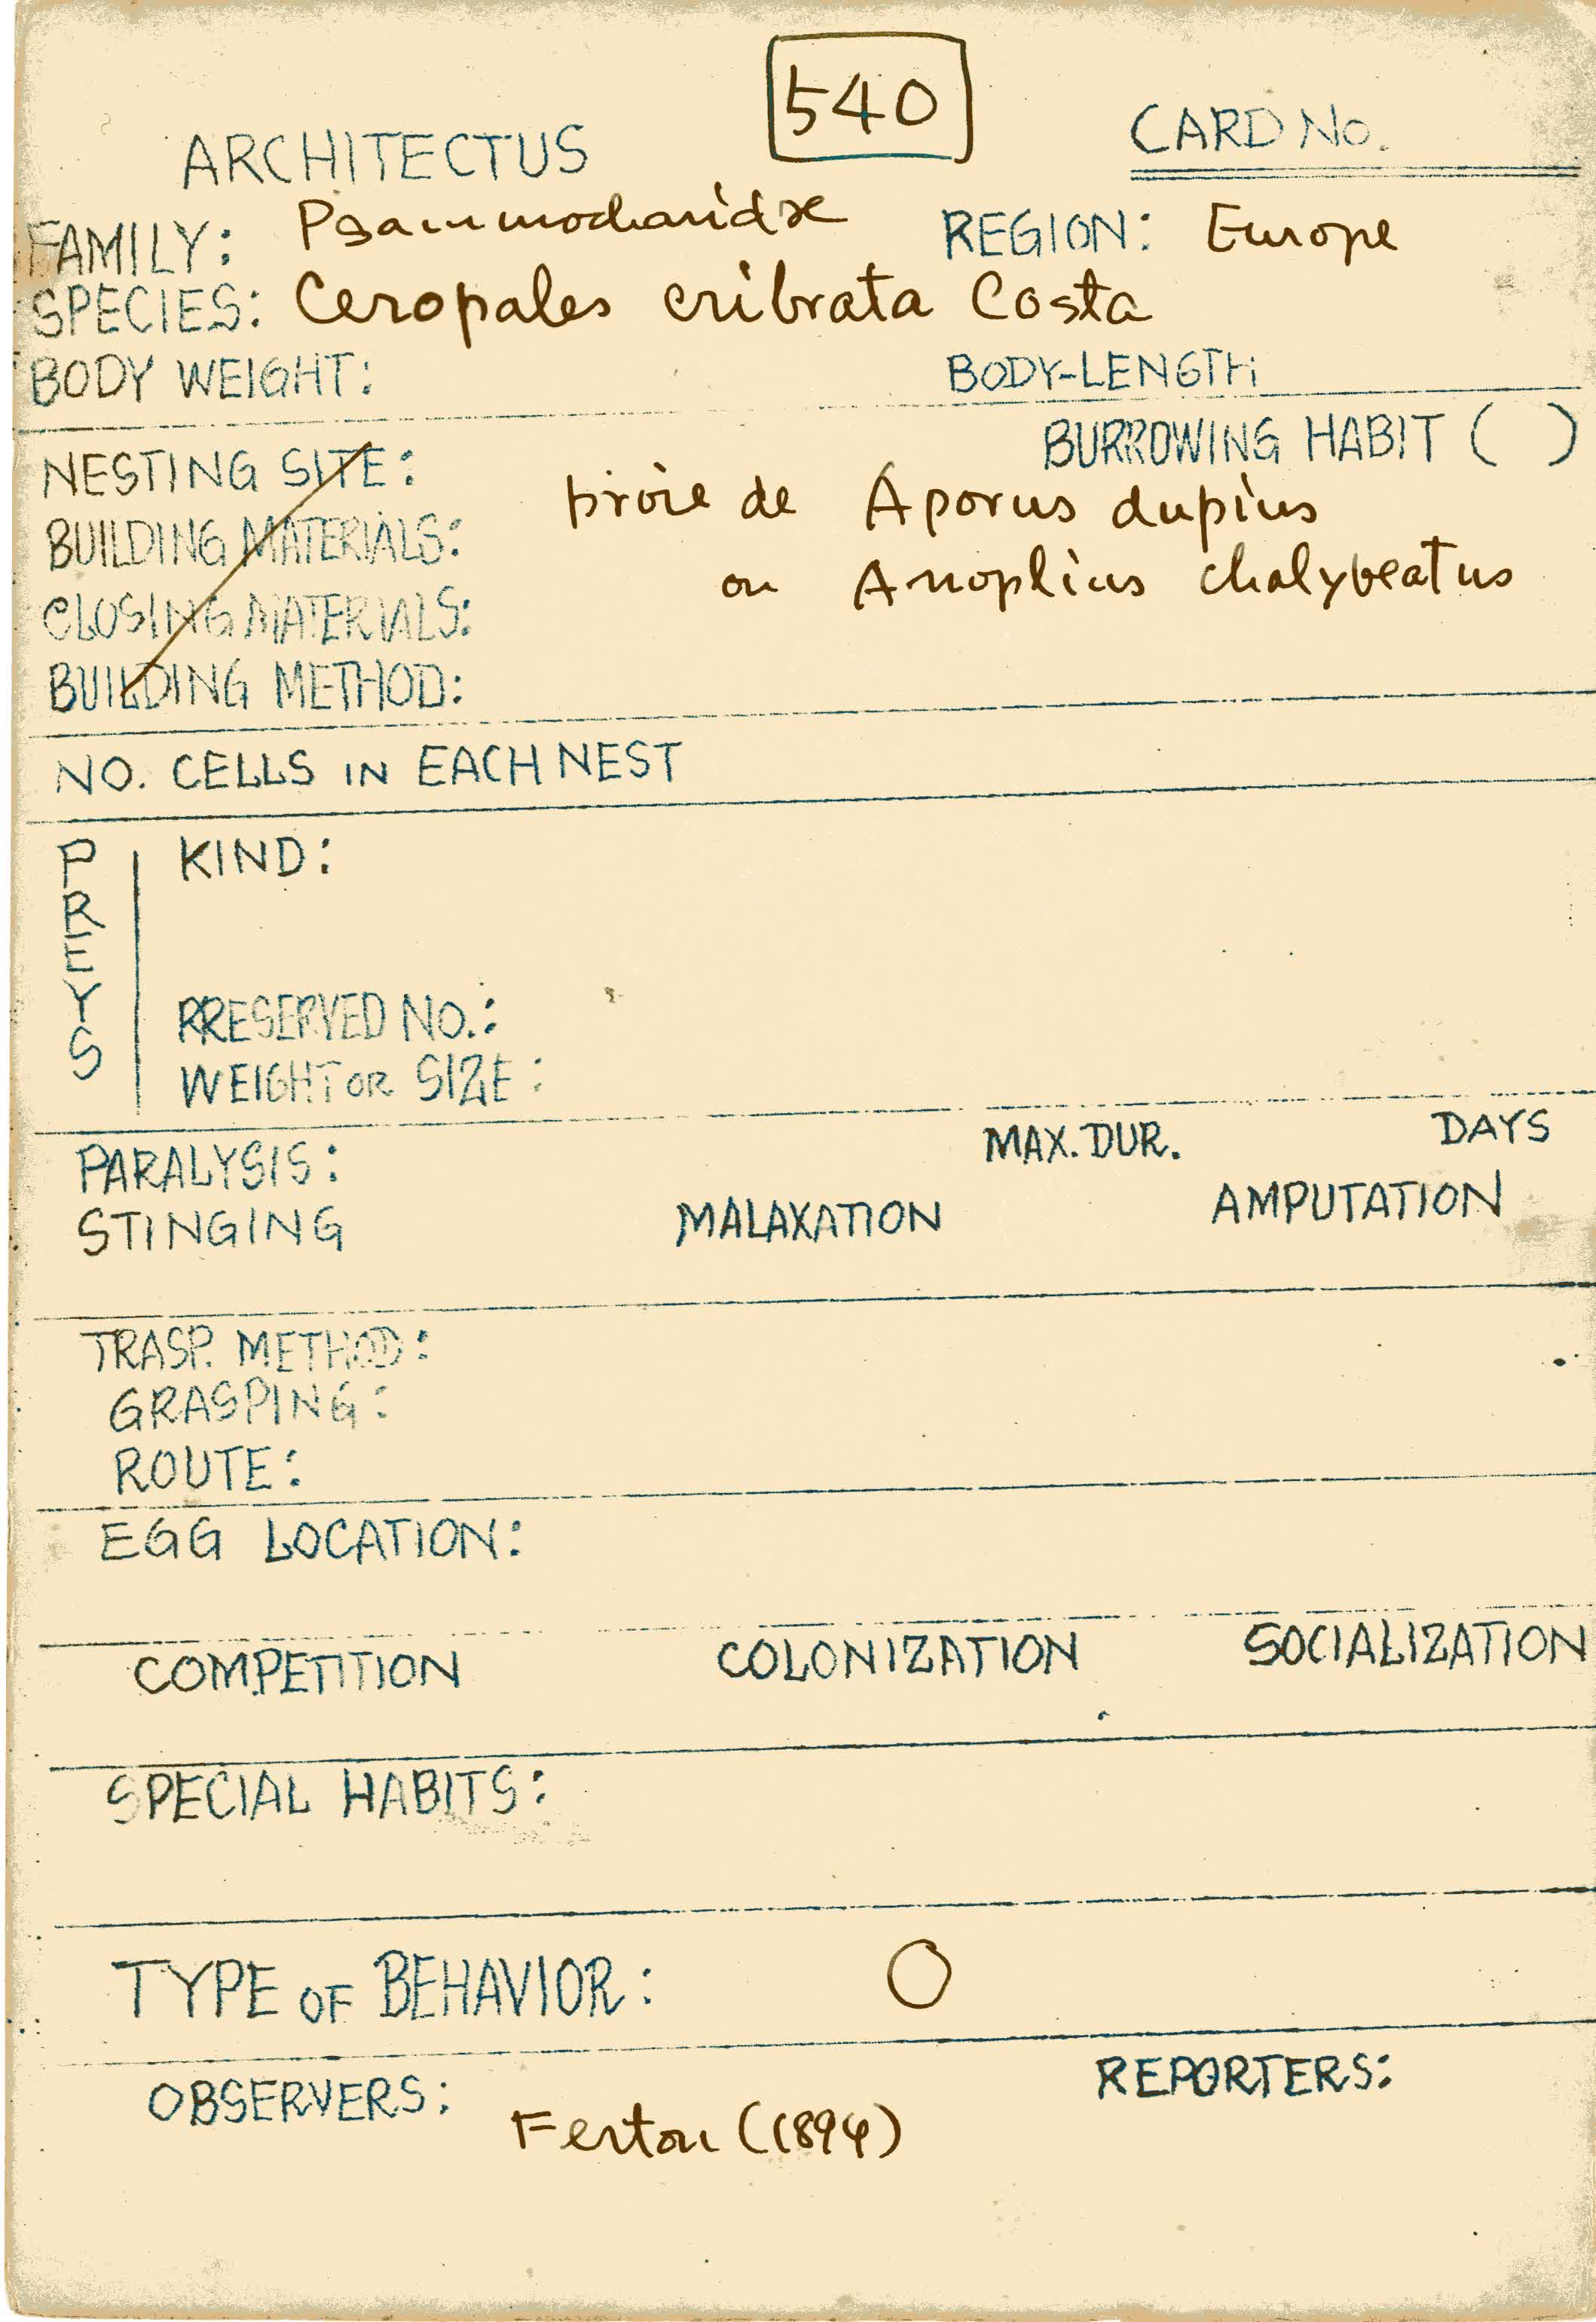 540
ARCHITECTUS CARD No.
FAMILY: Psammocharidæ REGION: Europe
SPECIES: Ceropales cribrata Costa
BODY WEIGHT: BODY-LENGTH
BURROWING HABIT ( )
NESTING SITE:
proie de Aporus dupius
BUILDING MATERIALS:
ou Anoplius chalybeatus
CLOSING MATERIALS:
BUILDING METHOD:
NO. CELLS IN EACH NEST
PREYS
KIND:
PRESERVED NO.:
WEIGHT OR SIZE:
MAX. DUR. DAYS
PARALYSIS:
STINGING MALAXATION AMPUTATION
TRASP. METHOD:
GRASPING:
ROUTE:
EGG LOCATION:
COMPETITION COLONIZATION SOCIALIZATION
SPECIAL HABITS:
TYPE OF BEHAVIOR: O
OBSERVERS: REPORTERS:
Ferton (1894)